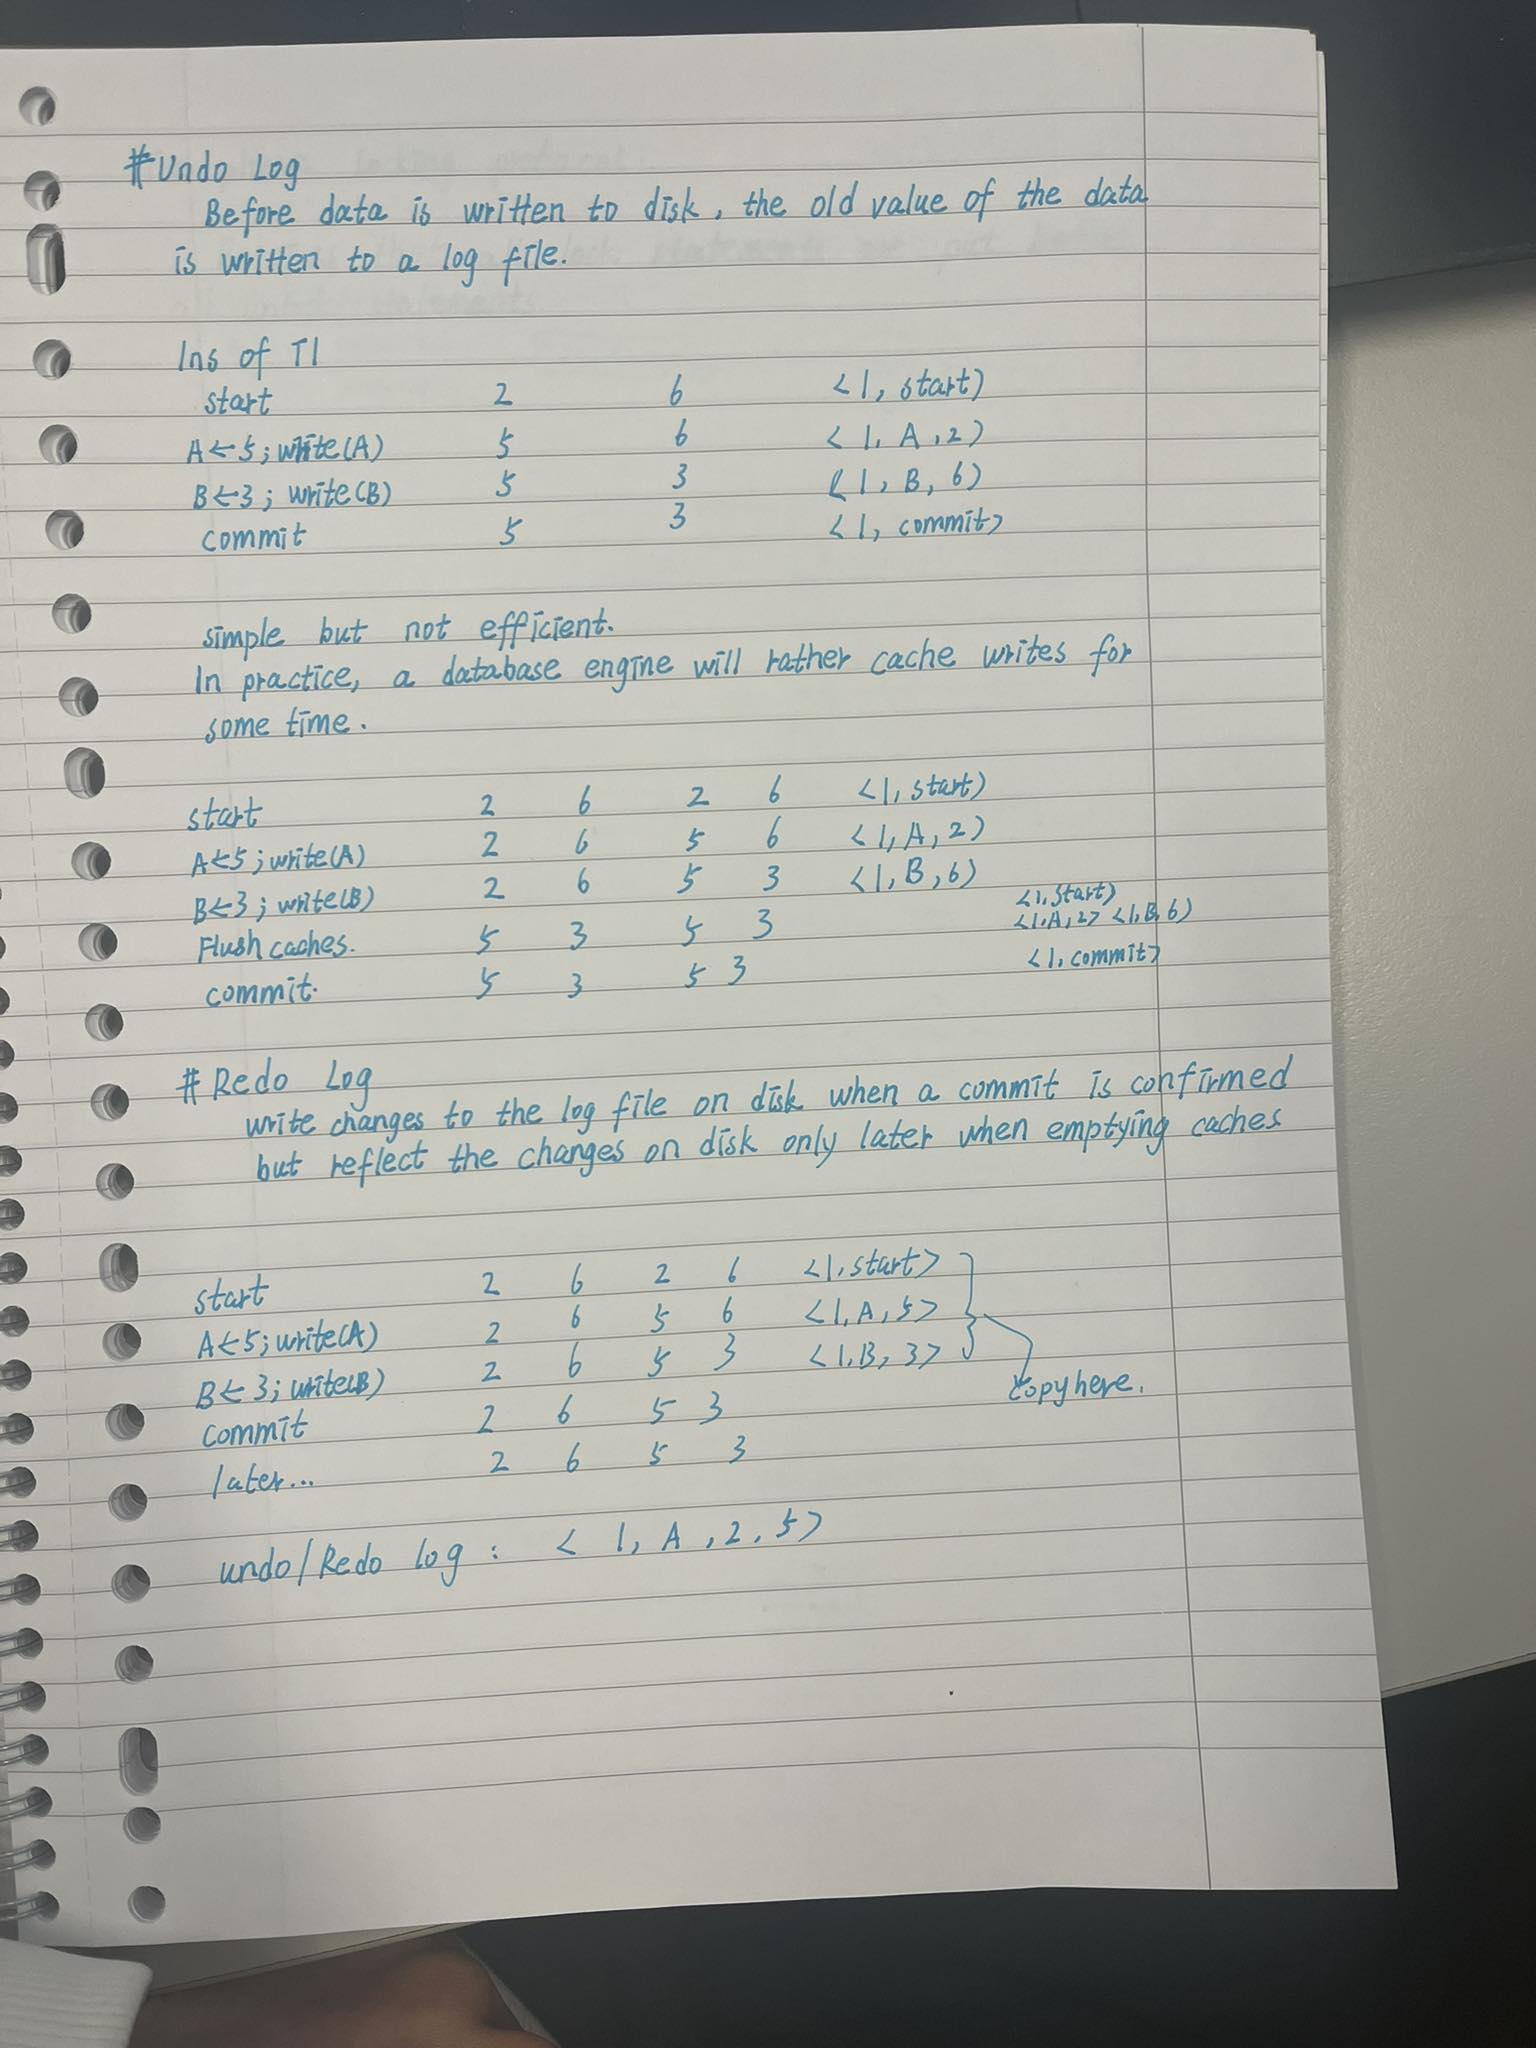 #Undo Log
Before data is written to disk, the old value of the data
is written to a log file.
Ins of T1
start 2 6 <1, start>
A←5; write(A) 5 6 <1, A, 2>
B←3; write(B) 5 3 <1, B, 6>
commit 5 3 <1, commit>
simple but not efficient.
In practice, a database engine will rather cache writes for
some time.
start 2 6 2 6 <1, start>
A←5; write(A) 2 6 5 6 <1, A, 2>
B←3; write(B) 2 6 5 3 <1, B, 6>
<1, start>
Flush caches. 5 3 5 3 <1, A, 2> <1, B, 6>
commit. 5 3 5 3 <1, commit>
# Redo Log
write changes to the log file on disk when a commit is confirmed
but reflect the changes on disk only later when emptying caches
start 2 6 2 6 <1, start>
A←5; write(A) 2 6 5 6 <1, A, 5>
B←3; write(B) 2 6 5 3 <1, B, 3>
copy here.
commit 2 6 5 3
later... 2 6 5 3
undo/Redo log : < 1, A, 2, 5>